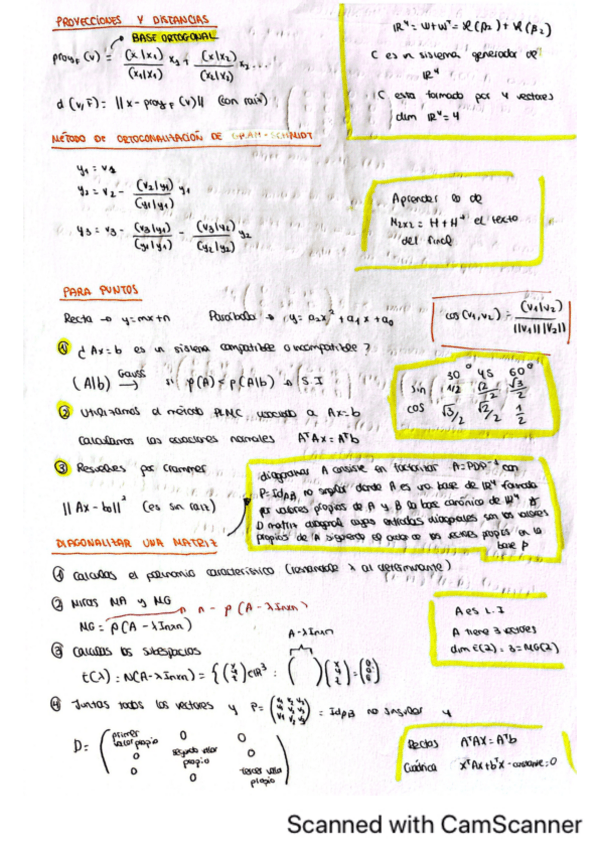 PROYECCIONES Y DISTANCIAS
BASE ORTOGONAL
proy_F (v) = (x|x1)/(x1|x1) x1 + (x|x2)/(x2|x2) x2 ...
d (v, F) = ||x - proy_F (v)|| (con raiz)
MÉTODO DE ORTOGONALIZACIÓN DE GRAM-SCHMIDT
y1 = v1
y2 = v2 - (v2|y1)/(y1|y1) y1
y3 = v3 - (v3|y1)/(y1|y1) - (v3|y2)/(y2|y2) y2
C es un sistema generador de
IR⁴
C esta formado por 4 vectores
dim IR⁴ = 4
Aprender lo de
el texto
del final
PARA PUNTOS
Recta → y = mx + n Parábola → y = a2x² + a1x + a0
cos (v1, v2) = (v1|v2)/||v1|| ||v2||
① ¿Ax = b es un sistema compatible o incompatible?
(A|b) Gauss → si ρ(A) < ρ(A|b) → S.I
30° 45 60°
sin 1/2 √2/2 √3/2
cos √3/2 √2/2 1/2
② Utilizamos el método PLMC asociado a Ax = b
Calculamos las ecuaciones normales AᵀAx = Aᵀb
③ Resolver por Crammer
||Ax - b0||² (es sin raiz)
diagonalizar A consiste en factorizar A = PDP⁻¹ con
P = Id_AB, no singular donde A es una base de IR⁴ formada
por valores propios de A y B la base canónica de IR⁴
D matriz diagonal cuyas entradas diagonales son los valores
propios de A siguiendo el orden de los vectores propios en la
base P
DIAGONALIZAR UNA MATRIZ
① Calculas el polinomio característico (restandole λ al determinante)
② Miras MA y MG n - ρ(A - λInxn)
MG = ρ(A - λInxn)
A es L.I
A tiene 3 vectores
dim E(2) = 3 = MG(2)
③ Calculas los subespacios
A - λInxn
E(λ) = N(A - λInxn) = {(x y z) ∈ IR³ : ( ) (x y z) = (0 0 0)}
④ Juntas todos los vectores y P = (v1 v2 v3) = Id_PB no singular y
D = ( primer valor propio 0 0
0 segundo valor propio 0
0 0 tercer valor propio )
Rectas AᵀAX = Aᵀb
Cuádrica XᵀAx + bᵀx - constante = 0
Scanned with CamScanner